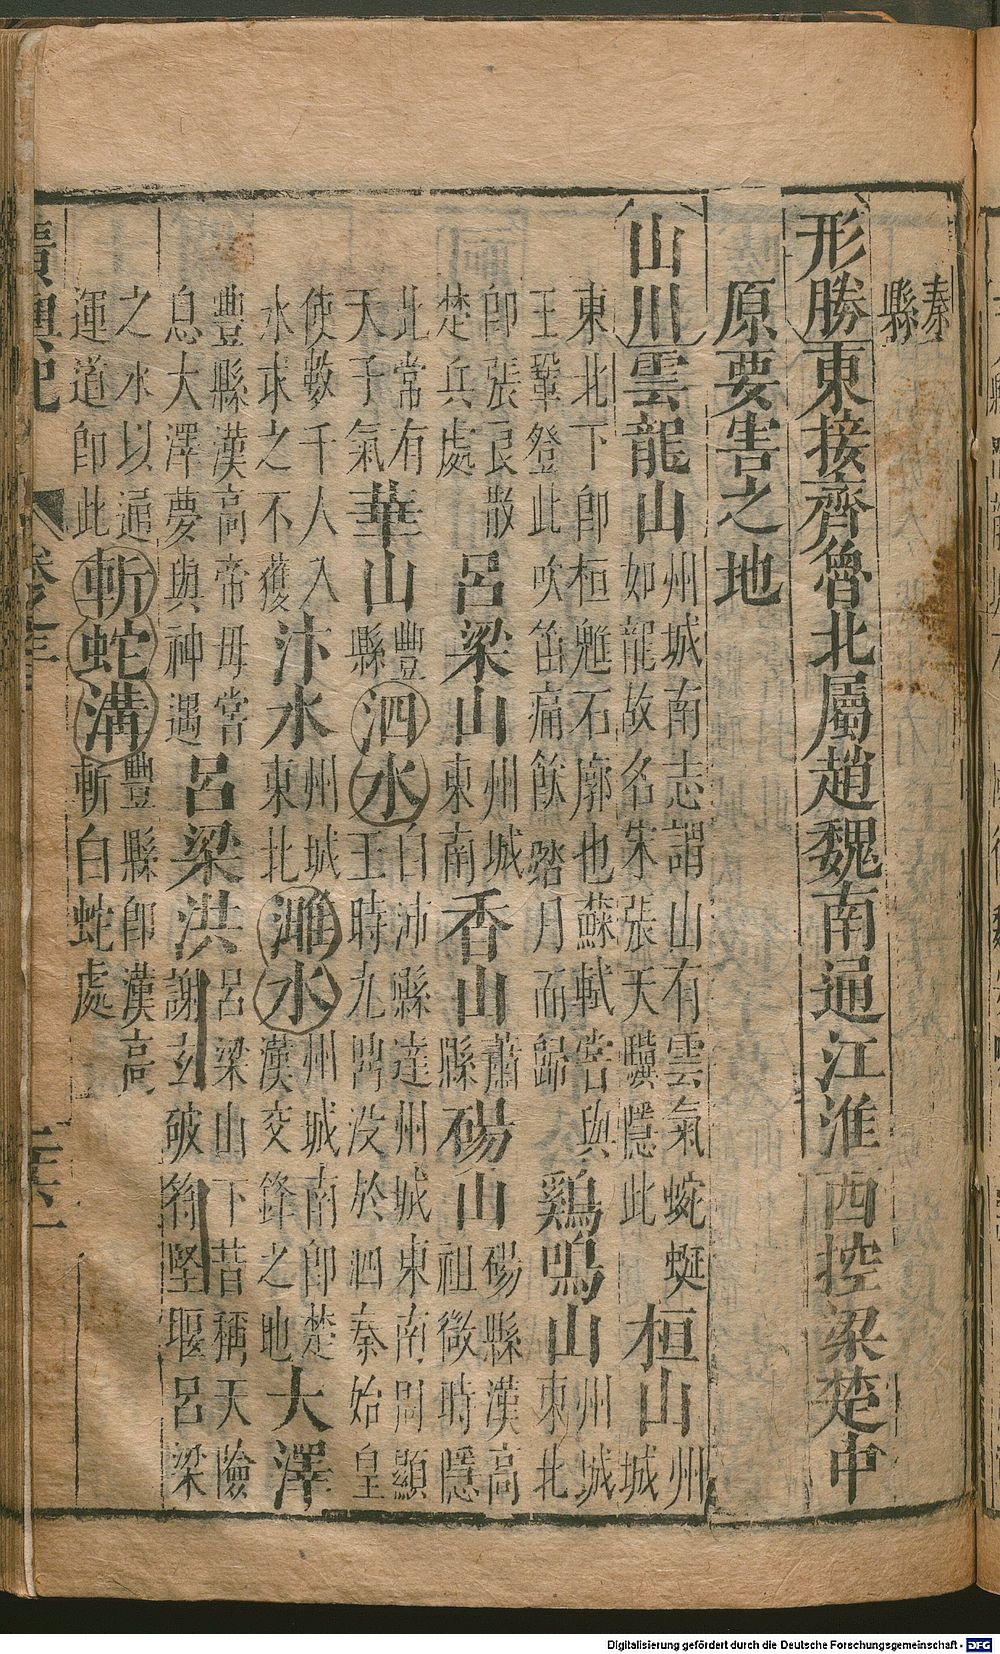 秦縣
形勝東接齊魯北屬趙魏南通江淮西控梁楚中
原要害之地
山川雲龍山州城南志謂山有雲氣蜿蜒如龍故名宋張天驥隱此桓山州城
東北下卽桓魋石廓也蘇軾嘗與王鞏登此吹笛痛飲踏月而歸鷄鳴山州城東北
卽張良散楚兵處呂梁山州城東南香山蕭縣碭山碭縣漢高祖微時隱
此常有天子氣華山豐縣泗水自沛縣達州城東南周顯王時九鼎没於泗秦始皇
使數千人入水求之不獲汴水州城東北濉水州城南卽楚漢交鋒之地大澤
豐縣漢高帝母嘗息大澤夢與神遇呂梁洪呂梁山下昔稱天險謝玄破符堅堰呂梁
之水以通運道卽此斬蛇溝豐縣卽漢高斬白蛇處
廣輿記
卷之三
Digitalisierung gefördert durch die Deutsche Forschungsgemeinschaft - DFG